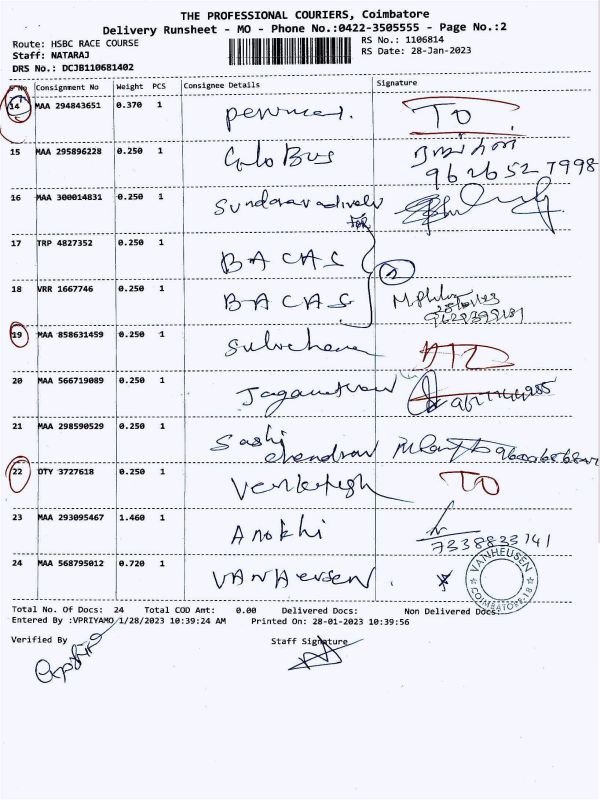 THE PROFESSIONAL COURIERS, Coimbatore
Delivery Runsheet - MO - Phone No.:0422-3505555 - Page No.:2
Route: HSBC RACE COURSE
RS No.: 1106814
Staff: NATARAJ
RS Date: 28-Jan-2023
DRS No.: DCJB110681402
S No Consignment No Weight PCS Consignee Details Signature
14 MAA 294843651 0.370 1 TO
15 MAA 295896228 0.250 1 GloBus
16 MAA 300014831 0.250 1 Sundaravadivelu
For
17 TRP 4827352 0.250 1 BACAS
18 VRR 1667746 0.250 1 BACAS
19 MAA 858631459 0.250 1 Sulochana
20 MAA 566719089 0.250 1
21 MAA 298590529 0.250 1 Sashi
chandran
22 OTY 3727618 0.250 1 Venkatesh TO
23 MAA 293095467 1.460 1 Anokhi
7338833141
24 MAA 568795012 0.720 1 VANHEUSEN
VANHEUSEN
COIMBATORE-18
Total No. Of Docs: 24 Total COD Amt: 0.00 Delivered Docs: Non Delivered Docs:
Entered By :VPRIYAMO 1/28/2023 10:39:24 AM Printed On: 28-01-2023 10:39:56
Verified By Staff Signature